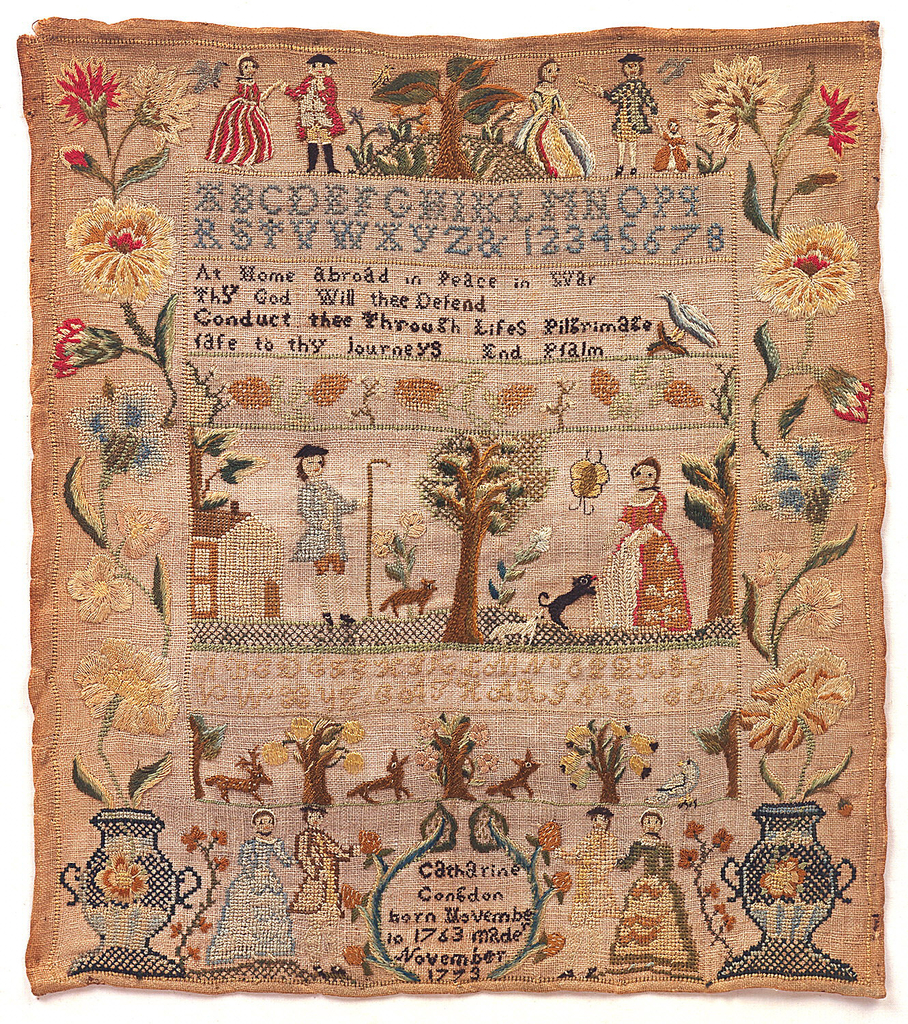 ABCDEFGHIKLMNOPQ
RSTVWXYZ& 12345678
At Home abroad in Peace in War
Thy God Will thee Defend
Conduct thee Through Lifes Pilgrimage
safe to thy Journeys End Psalm
Catharine
Congdon
born Novembe
10 1763 made
November
1773